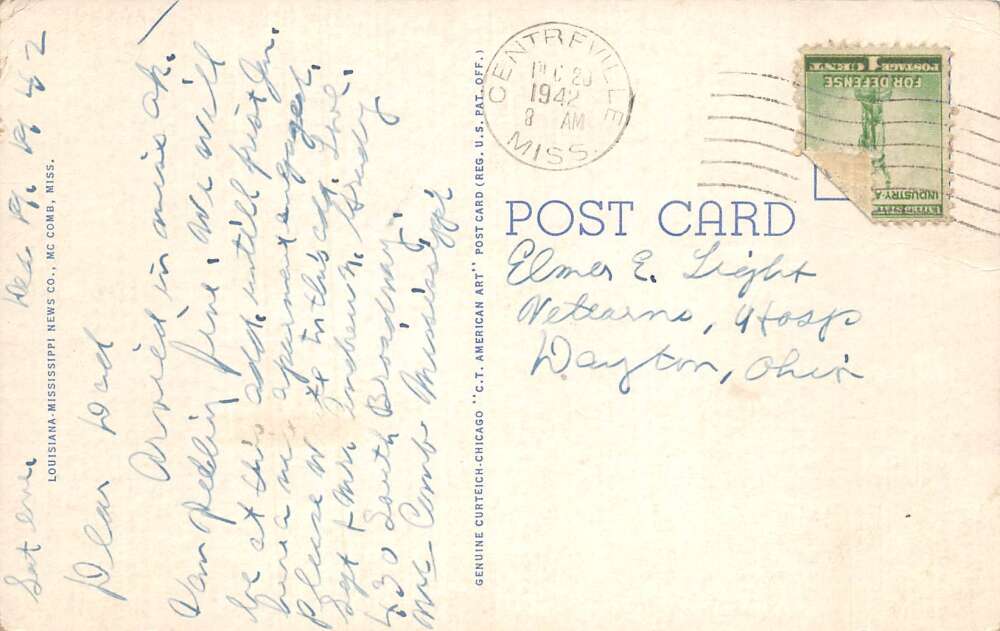 Sat eve. Dec 19. 42
Dear Dad
Arrived in nice ap.
Van feeling fine. We will
be at this add. untill first Jan.
have an apartment engaged.
please w to this add. Love
Sgt & Mrs Andrew N. Grady
430 South Broadway
Mc-Comb Mississippi
LOUISIANA-MISSISSIPPI NEWS CO., MC COMB, MISS.
GENUINE CURTEICH-CHICAGO "C.T. AMERICAN ART" POST CARD (REG. U.S. PAT. OFF.)
CENTREVILLE
1942
8 AM
MISS.
POSTAGE 1 CENT
FOR DEFENSE
INDUSTRY-A
POST CARD
Elmer E. Light
Vetearns, Hosp
Dayton, Ohio